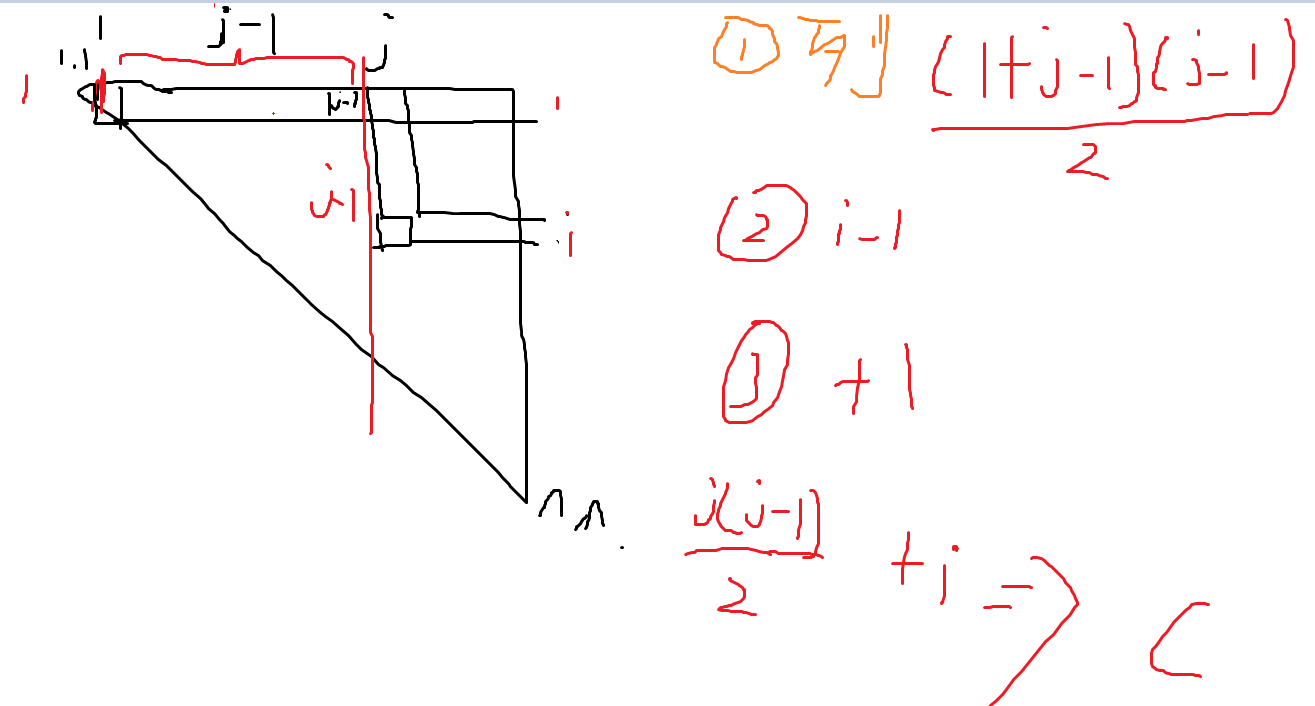 1 j-1 j
1.1
1 j-1 1
j-1 i
n n.
① 列 (1+j-1)(j-1)
2
② i-1
③ +1
j(j-1)
2
+i => C